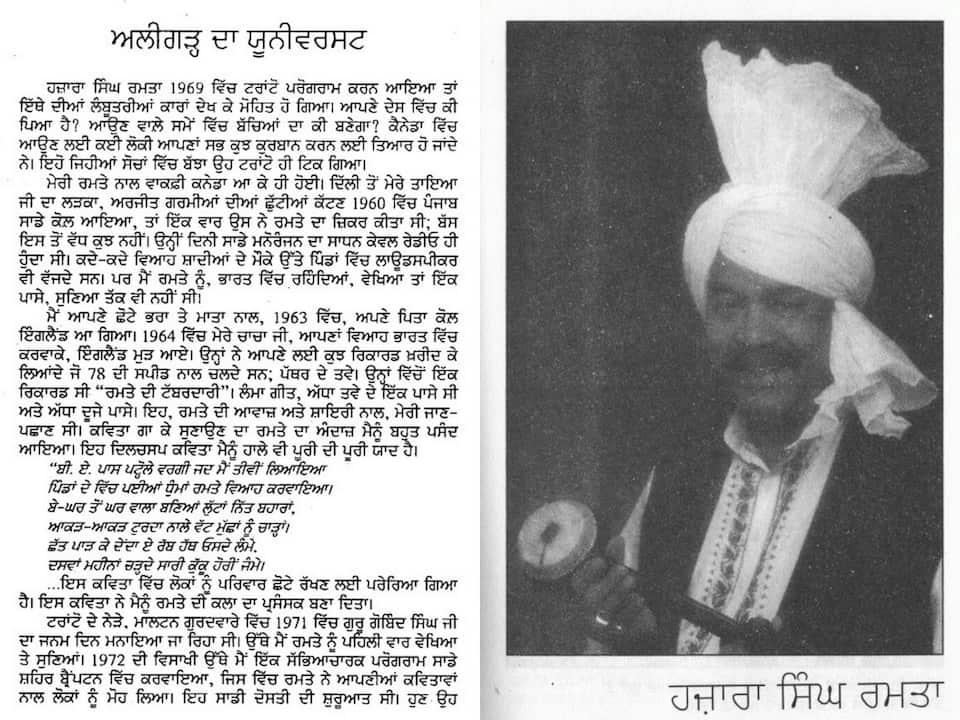 ਅਲੀਗੜ੍ਹ ਦਾ ਯੂਨੀਵਰਸਟ
ਹਜ਼ਾਰਾ ਸਿੰਘ ਰਮਤਾ 1969 ਵਿੱਚ ਟਰਾਂਟੋ ਪਰੋਗਰਾਮ ਕਰਨ ਆਇਆ ਤਾਂ
ਇੱਥੇ ਦੀਆਂ ਲੰਬੂਤਰੀਆਂ ਕਾਰਾਂ ਦੇਖ ਕੇ ਮੋਹਿਤ ਹੋ ਗਿਆ। ਆਪਣੇ ਦੇਸ ਵਿੱਚ ਕੀ
ਪਿਆ ਹੈ? ਆਉਣ ਵਾਲੇ ਸਮੇਂ ਵਿੱਚ ਬੱਚਿਆਂ ਦਾ ਕੀ ਬਣੇਗਾ? ਕੈਨੇਡਾ ਵਿੱਚ
ਆਉਣ ਲਈ ਕਈ ਲੋਕੀ ਆਪਣਾਂ ਸਭ ਕੁਝ ਕੁਰਬਾਨ ਕਰਨ ਲਈ ਤਿਆਰ ਹੋ ਜਾਂਦੇ
ਨੇ। ਇਹੋ ਜਿਹੀਆਂ ਸੋਚਾਂ ਵਿੱਚ ਬੱਝਾ ਉਹ ਟਰਾਂਟੋ ਹੀ ਟਿਕ ਗਿਆ।
ਮੇਰੀ ਰਮਤੇ ਨਾਲ ਵਾਕਫ਼ੀ ਕਨੇਡਾ ਆ ਕੇ ਹੀ ਹੋਈ। ਦਿੱਲੀ ਤੋਂ ਮੇਰੇ ਤਾਇਆ
ਜੀ ਦਾ ਲੜਕਾ, ਅਰਜੀਤ ਗਰਮੀਆਂ ਦੀਆਂ ਛੁੱਟੀਆਂ ਕੱਟਣ 1960 ਵਿੱਚ ਪੰਜਾਬ
ਸਾਡੇ ਕੋਲ ਆਇਆ, ਤਾਂ ਇੱਕ ਵਾਰ ਉਸ ਨੇ ਰਮਤੇ ਦਾ ਜ਼ਿਕਰ ਕੀਤਾ ਸੀ; ਬੱਸ
ਇਸ ਤੋਂ ਵੱਧ ਕੁਝ ਨਹੀਂ। ਉਨ੍ਹੀਂ ਦਿਨੀ ਸਾਡੇ ਮਨੋਰੰਜਨ ਦਾ ਸਾਧਨ ਕੇਵਲ ਰੇਡੀਓ ਹੀ
ਹੁੰਦਾ ਸੀ। ਕਦੇ-ਕਦੇ ਵਿਆਹ ਸ਼ਾਦੀਆਂ ਦੇ ਮੌਕੇ ਉੱਤੇ ਪਿੰਡਾਂ ਵਿੱਚ ਲਾਊਡਸਪੀਕਰ
ਵੀ ਵੱਜਦੇ ਸਨ। ਪਰ ਮੈਂ ਰਮਤੇ ਨੂੰ, ਭਾਰਤ ਵਿੱਚ ਰਹਿੰਦਿਆਂ, ਵੇਖਿਆ ਤਾਂ ਇੱਕ
ਪਾਸੇ, ਸੁਣਿਆ ਤੱਕ ਵੀ ਨਹੀਂ ਸੀ।
ਮੈਂ ਆਪਣੇ ਛੋਟੇ ਭਰਾ ਤੇ ਮਾਤਾ ਨਾਲ, 1963 ਵਿੱਚ, ਅਪਣੇ ਪਿਤਾ ਕੋਲ
ਇੰਗਲੈਂਡ ਆ ਗਿਆ। 1964 ਵਿੱਚ ਮੇਰੇ ਚਾਚਾ ਜੀ, ਆਪਣਾਂ ਵਿਆਹ ਭਾਰਤ ਵਿੱਚ
ਕਰਵਾਕੇ, ਇੰਗਲੈਂਡ ਮੁੜ ਆਏ। ਉਨ੍ਹਾਂ ਨੇ ਆਪਣੇ ਲਈ ਕੁਝ ਰਿਕਾਰਡ ਖ਼ਰੀਦ ਕੇ
ਲਿਆਂਦੇ ਜੋ 78 ਦੀ ਸਪੀਡ ਨਾਲ ਚਲਦੇ ਸਨ; ਪੱਥਰ ਦੇ ਤਵੇ। ਉਨ੍ਹਾਂ ਵਿੱਚੋਂ ਇੱਕ
ਰਿਕਾਰਡ ਸੀ “ਰਮਤੇ ਦੀ ਟੱਬਰਦਾਰੀ”। ਲੰਮਾ ਗੀਤ, ਅੱਧਾ ਤਵੇ ਦੇ ਇੱਕ ਪਾਸੇ ਸੀ
ਅਤੇ ਅੱਧਾ ਦੂਜੇ ਪਾਸੇ। ਇਹ, ਰਮਤੇ ਦੀ ਆਵਾਜ਼ ਅਤੇ ਸ਼ਾਇਰੀ ਨਾਲ, ਮੇਰੀ ਜਾਣ-
ਪਛਾਣ ਸੀ। ਕਵਿਤਾ ਗਾ ਕੇ ਸੁਣਾਉਣ ਦਾ ਰਮਤੇ ਦਾ ਅੰਦਾਜ਼ ਮੈਨੂੰ ਬਹੁਤ ਪਸੰਦ
ਆਇਆ। ਇਹ ਦਿਲਚਸਪ ਕਵਿਤਾ ਮੈਨੂੰ ਹਾਲੇ ਵੀ ਪੂਰੀ ਦੀ ਪੂਰੀ ਯਾਦ ਹੈ।
“ਬੀ. ਏ. ਪਾਸ ਪਟ੍ਹੋਲੇ ਵਰਗੀ ਜਦ ਮੈਂ ਤੀਵੀਂ ਲਿਆਇਆ
ਪਿੰਡਾਂ ਦੇ ਵਿੱਚ ਪਈਆਂ ਧੁੰਮਾਂ ਰਮਤੇ ਵਿਆਹ ਕਰਵਾਇਆ।
ਬੇ-ਘਰ ਤੋਂ ਘਰ ਵਾਲਾ ਬਣਿਆਂ ਲੁੱਟਾਂ ਨਿੱਤ ਬਹਾਰਾਂ,
ਆਕੜ-ਆਕੜ ਟੁਰਦਾ ਨਾਲੇ ਵੱਟ ਮੁੱਛਾਂ ਨੂੰ ਚਾੜ੍ਹਾਂ।
ਛੱਤ ਪਾੜ ਕੇ ਦੇਂਦਾ ਏ ਰੱਬ ਹੱਥ ਓਸਦੇ ਲੰਮੇ,
ਦਸਵਾਂ ਮਹੀਨਾਂ ਚੜ੍ਹਦੇ ਸਾਰੀ ਕੁੱਕੂ ਹੋਰੀਂ ਜੰਮੇ।
...ਇਸ ਕਵਿਤਾ ਵਿੱਚ ਲੋਕਾਂ ਨੂੰ ਪਰਿਵਾਰ ਛੋਟੇ ਰੱਖਣ ਲਈ ਪਰੇਰਿਆ ਗਿਆ
ਹੈ। ਇਸ ਕਵਿਤਾ ਨੇ ਮੈਨੂੰ ਰਮਤੇ ਦੀ ਕਲਾ ਦਾ ਪ੍ਰਸੰਸਕ ਬਣਾ ਦਿਤਾ।
ਟਰਾਂਟੋ ਦੇ ਨੇੜੇ, ਮਾਲਟਨ ਗੁਰਦਵਾਰੇ ਵਿੱਚ 1971 ਵਿੱਚ ਗੁਰੂ ਗੋਬਿੰਦ ਸਿੰਘ ਜੀ
ਦਾ ਜਨਮ ਦਿਨ ਮਨਾਇਆ ਜਾ ਰਿਹਾ ਸੀ। ਉੱਥੇ ਮੈਂ ਰਮਤੇ ਨੂੰ ਪਹਿਲੀ ਵਾਰ ਵੇਖਿਆ
ਤੇ ਸੁਣਿਆਂ। 1972 ਦੀ ਵਿਸਾਖੀ ਉੱਥੇ ਮੈਂ ਇੱਕ ਸੱਭਿਆਚਾਰਕ ਪਰੋਗਰਾਮ ਸਾਡੇ
ਸ਼ਹਿਰ ਬ੍ਰੈਂਪਟਨ ਵਿੱਚ ਕਰਵਾਇਆ, ਜਿਸ ਵਿੱਚ ਰਮਤੇ ਨੇ ਆਪਣੀਆਂ ਕਵਿਤਾਵਾਂ
ਨਾਲ ਲੋਕਾਂ ਨੂੰ ਮੋਹ ਲਿਆ। ਇਹ ਸਾਡੀ ਦੋਸਤੀ ਦੀ ਸ਼ੁਰੂਆਤ ਸੀ। ਹੁਣ ਉਹ
ਹਜ਼ਾਰਾ ਸਿੰਘ ਰਮਤਾ